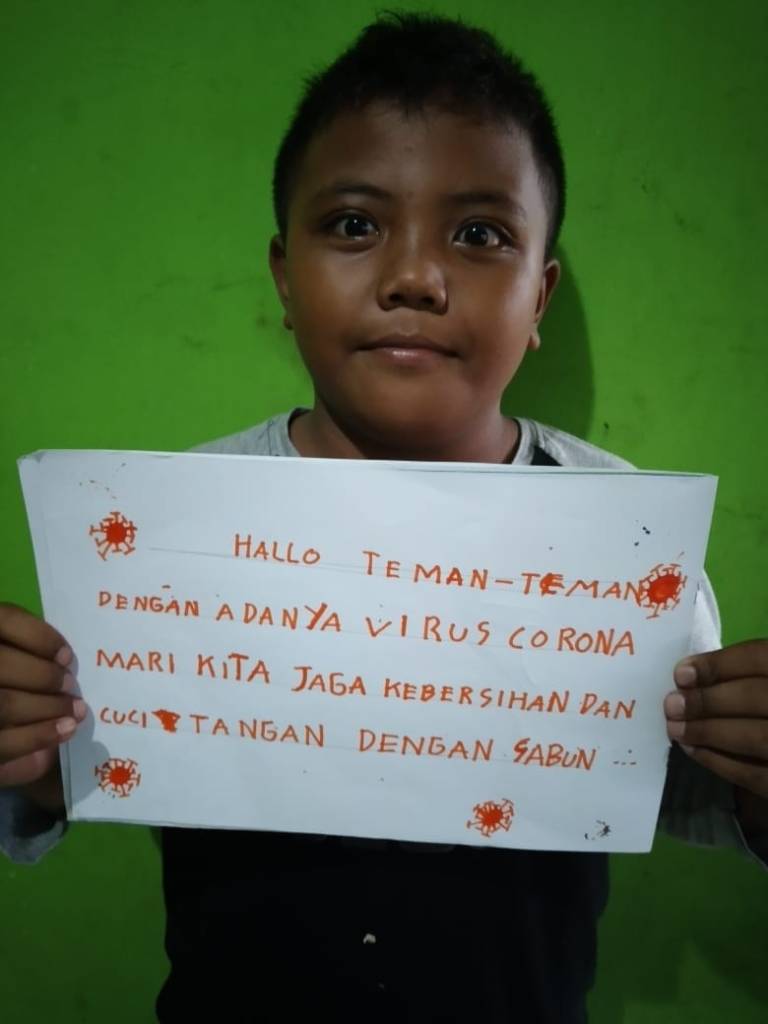 HALLO TEMAN-TEMAN
DENGAN ADANYA VIRUS CORONA
MARI KITA JAGA KEBERSIHAN DAN
CUCI TANGAN DENGAN SABUN ...